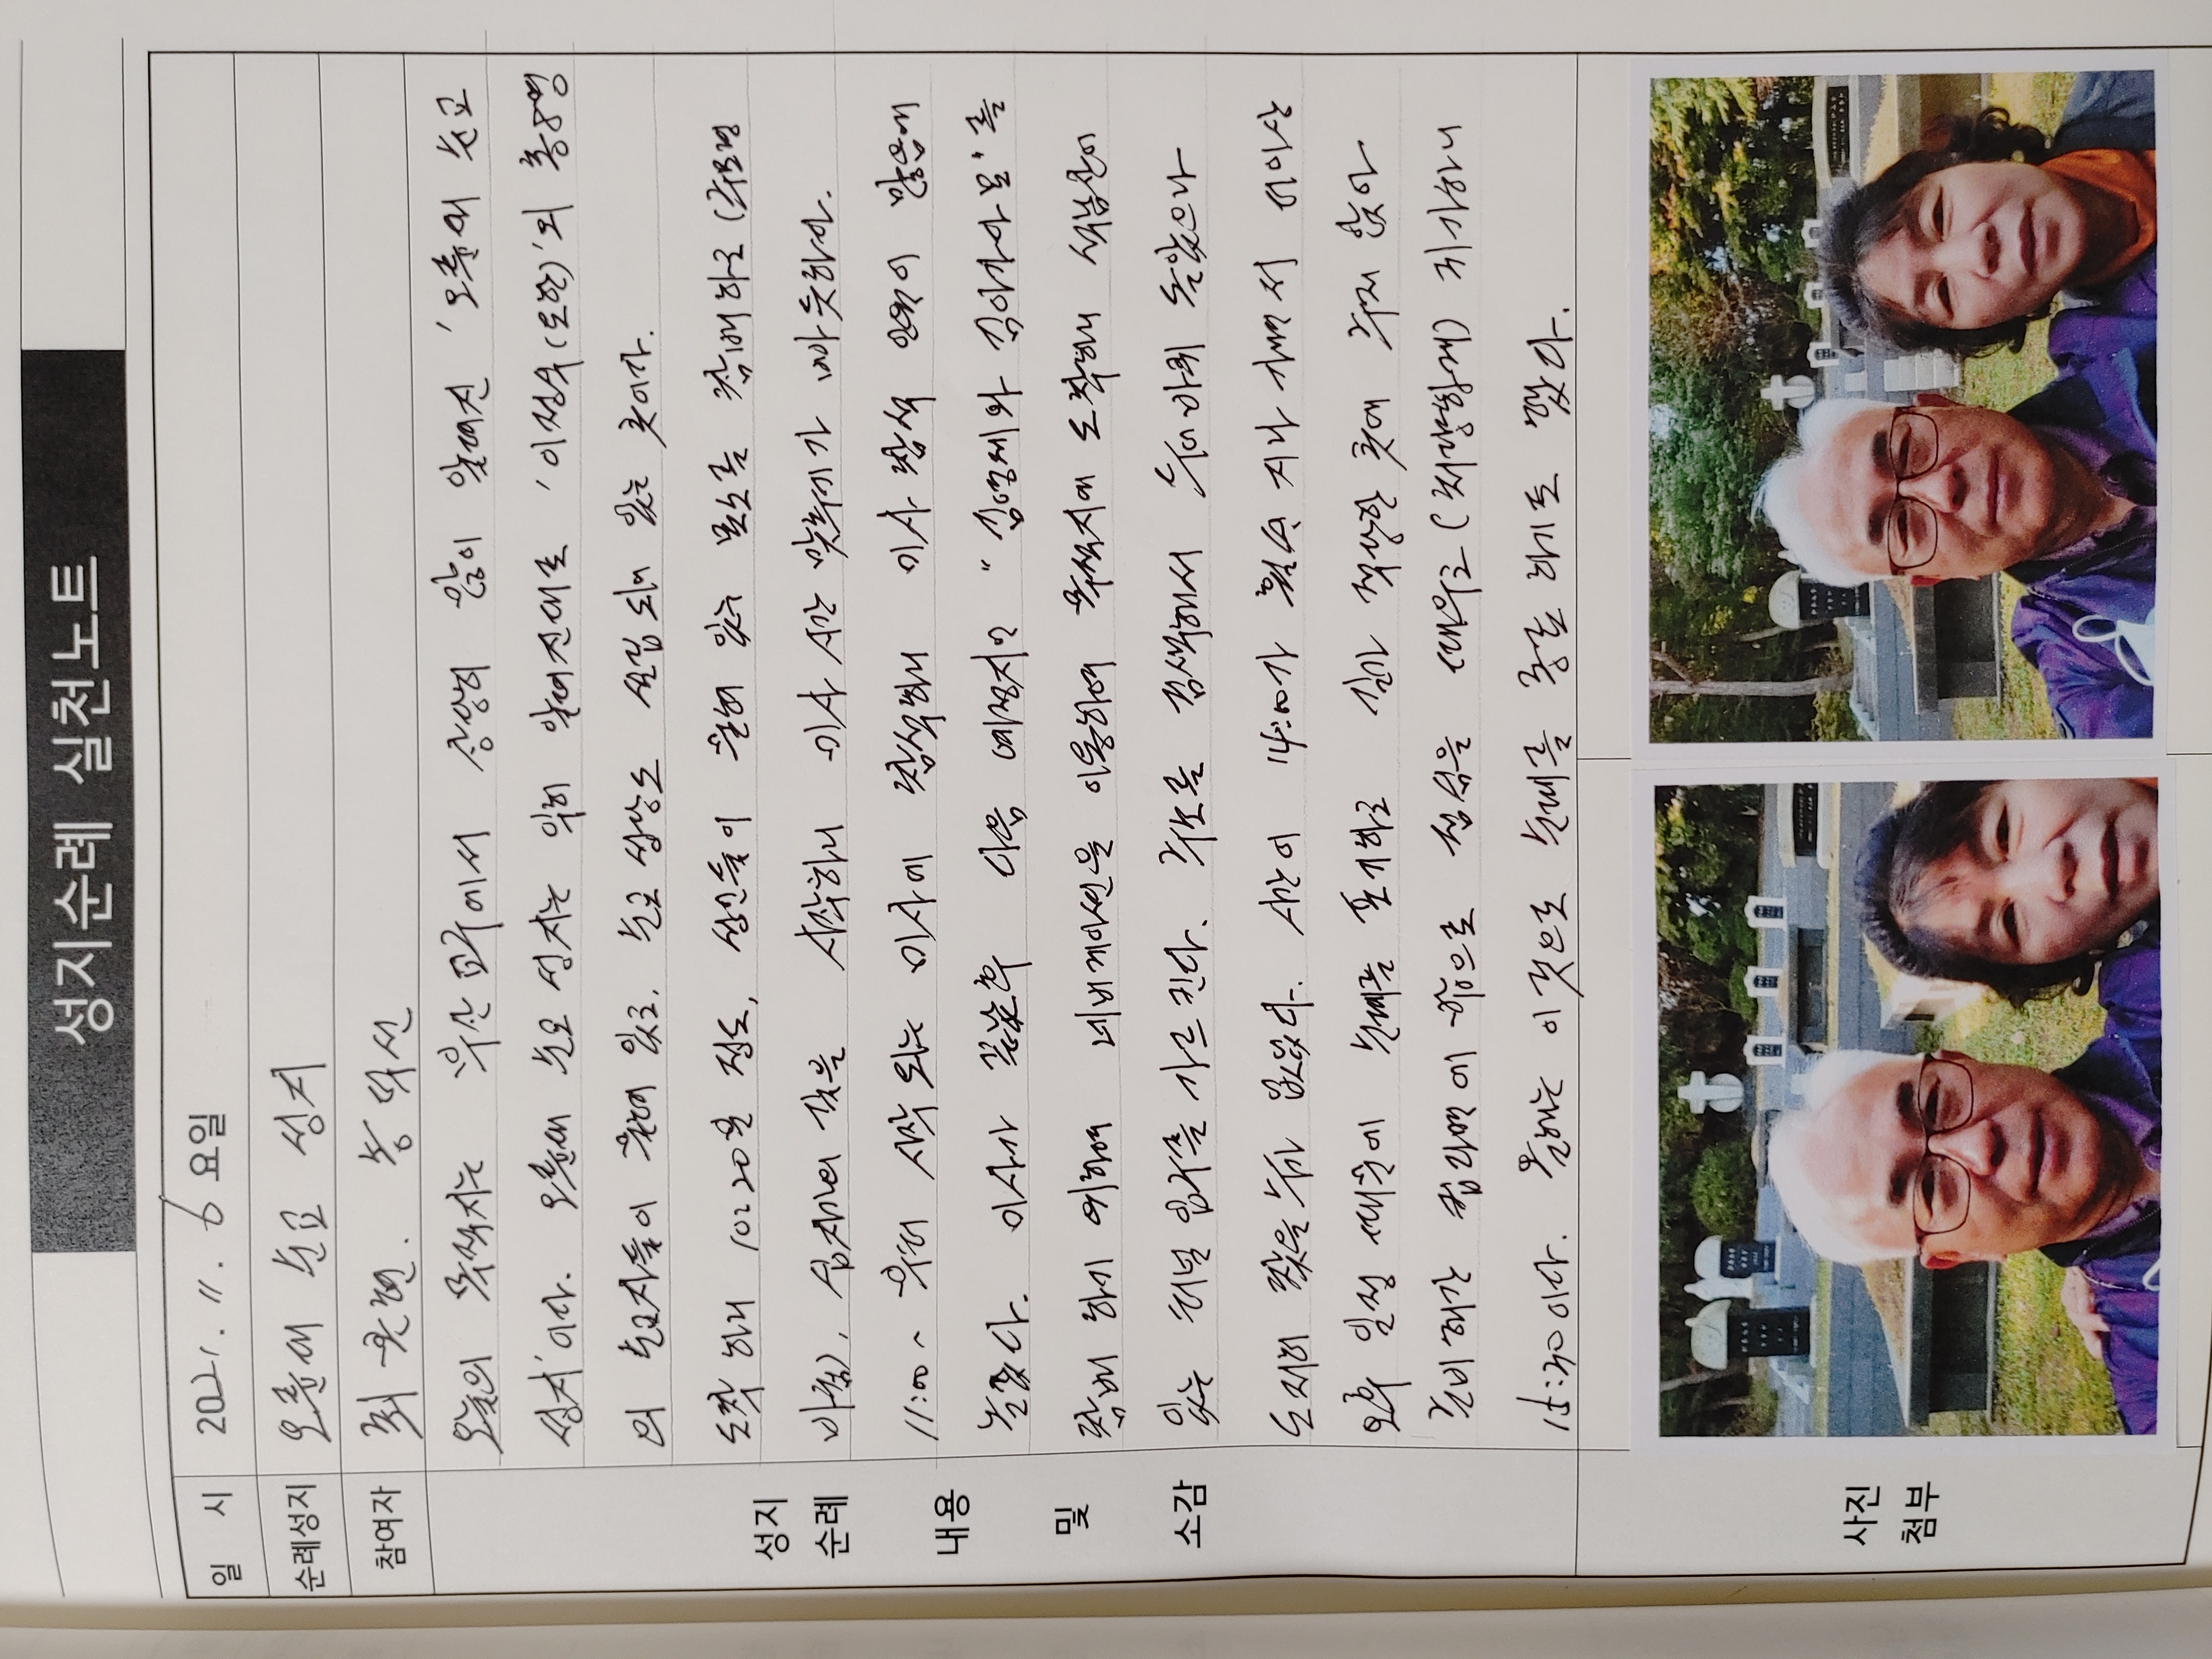 성지순례 실천노트
일 시 2021. 11. 6 요일
순례성지 오륜대 순교 성지
참여자 최 현.
오늘의 목적지는 부산교구에서 상당히 많이 알려진 '오륜대 순교
성지'이다. 오륜대 순교 성지는 익히 알려진대로 '이정식(요한)'외 총8명
의 순교자들이 묻혀 있고, 순교 성당도 설립되어 있는 곳이다.
도착하니 10:20분 정도, 성인들이 묻혀 있는 묘소를 참배하고 (주모경
바침), 십자가의 길을 시작하니 미사 시간 맞추기가 빠듯하다.
11:00~ 부터 시작 되는 미사에 참석하니 미사 참석 인원이 많음에
놀랐다. 미사가 끝난후 다음 예정지인 "김영제와 김아가다 묘"를
참배 하기 위하여 네비게이션을 이동하여 목적지에 도착하니 석남산에
있는 터널 입구를 가르킨다. 주소를 검색해서 두어바퀴 돌았으나
도저히 찾을수가 없었다. 시간이 14:00가 훨씬 지나가면서 더이상
오후 일정 때문에 순례를 포기하고 길가 적당한 곳에 주저 앉아
준비해간 컵라면에 밥으로 점심을 때우고 (처량하게) 귀가하니
15:30이다. 올해는 이것으로 순례를 종료 하기로 했다.
성지
순례
내용
및
소감
사진
첨부